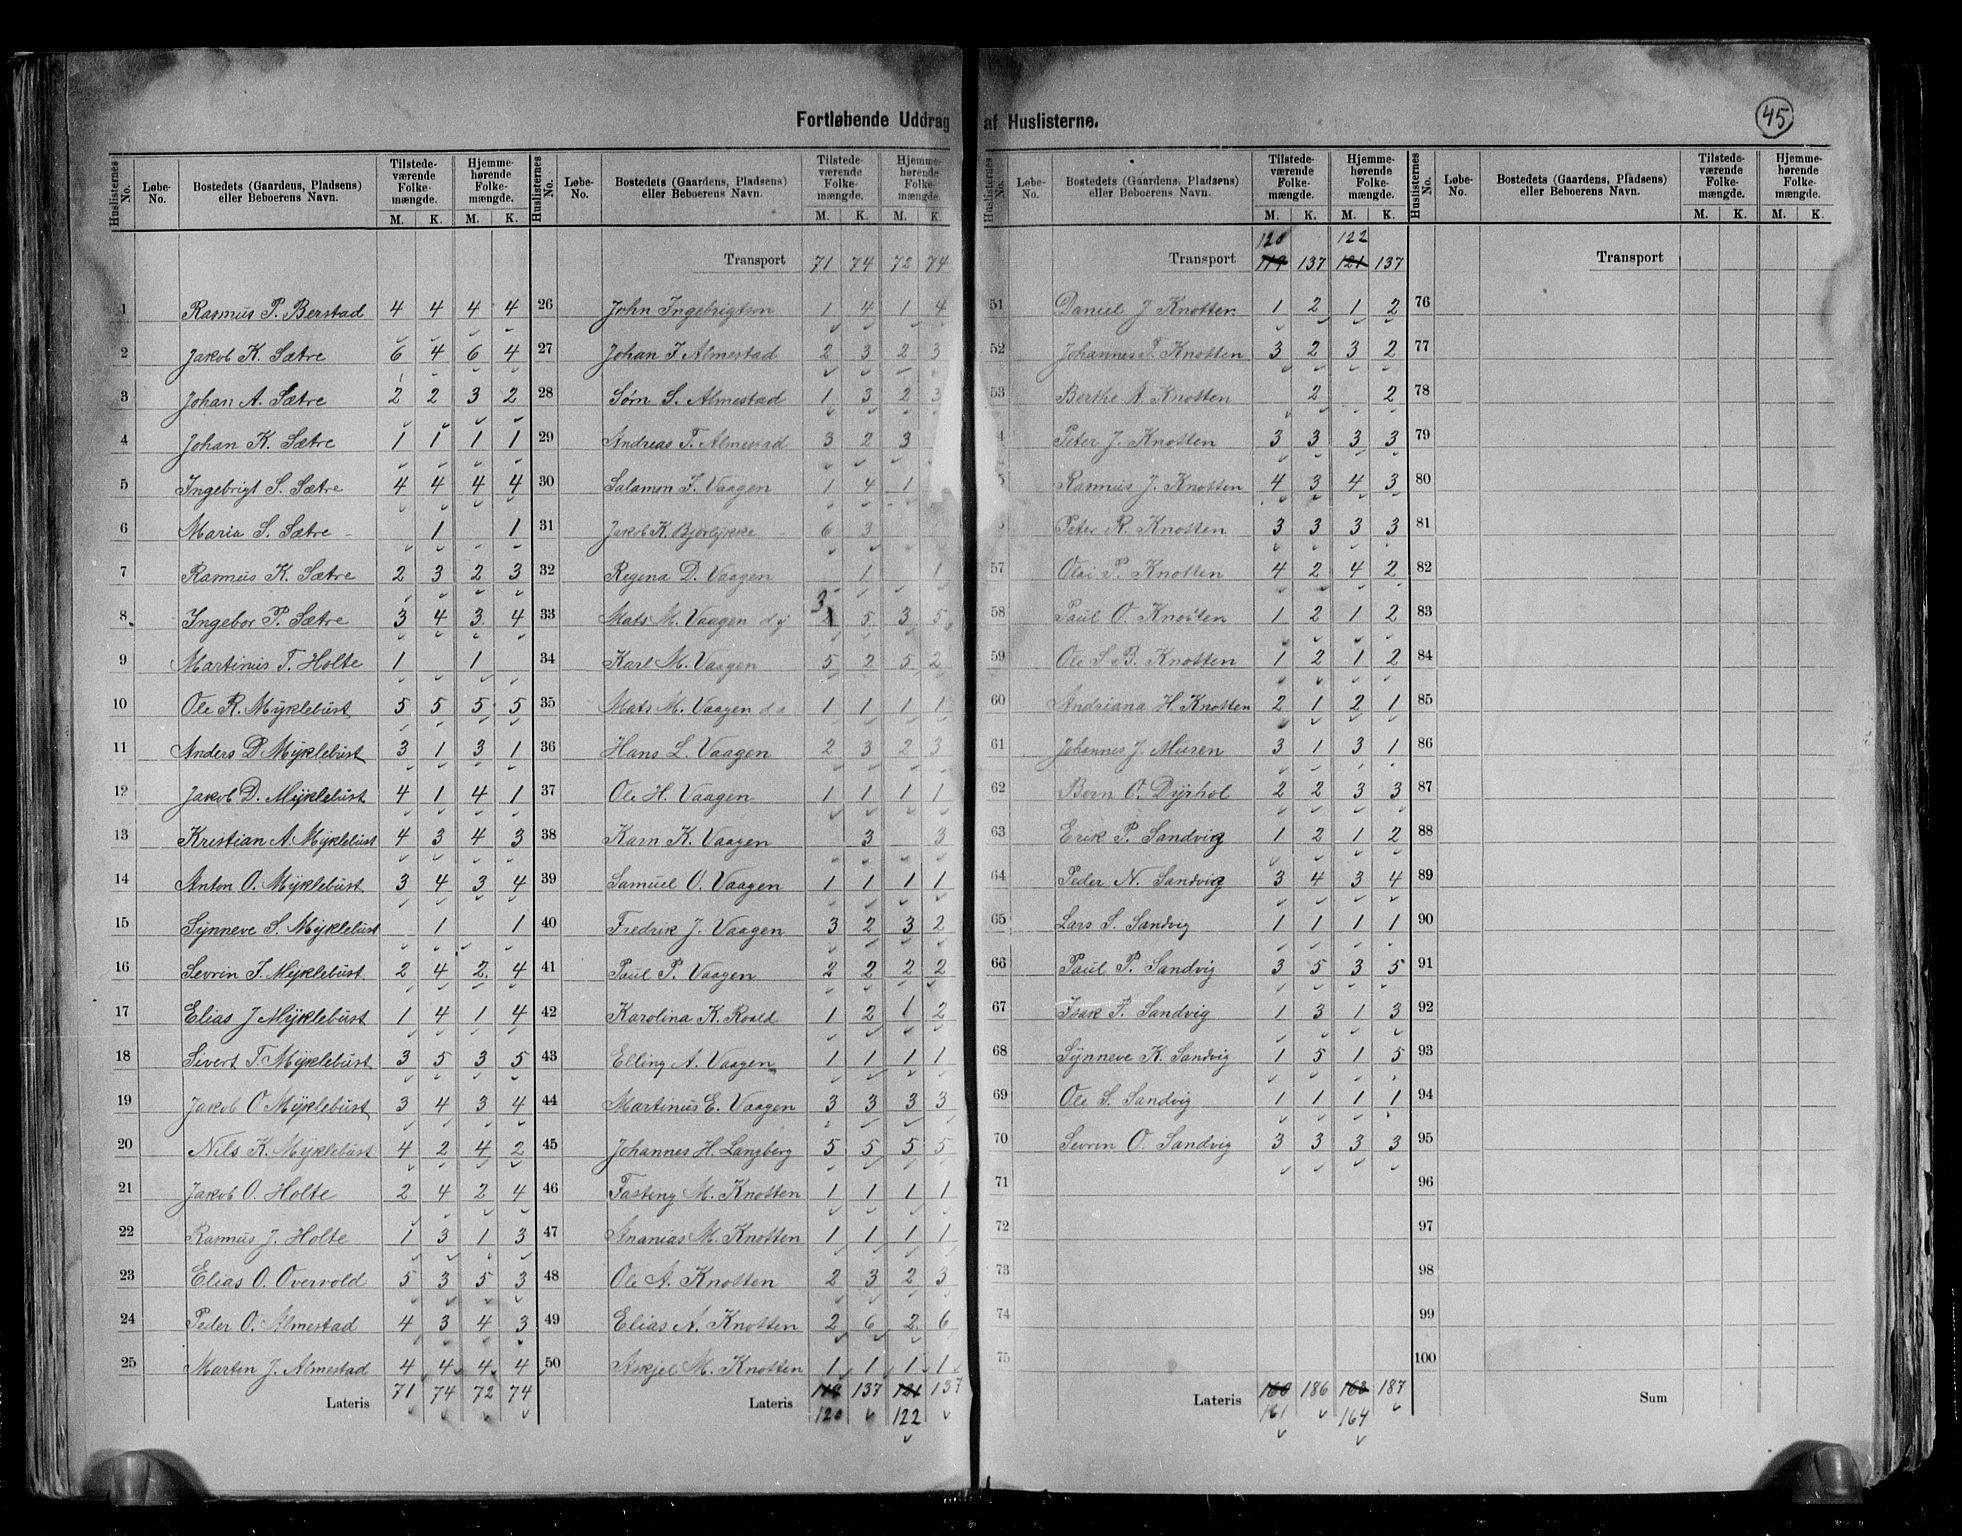 Fortløbende Uddrag af Huslisterne.
45
Huslisternes No. Løbe-No. Bostedets (Gaardens, Pladsens) eller Beboerens Navn. Tilstedeværende Folkemængde. M. K. Hjemmehørende Folkemængde. M. K.
1 Rasmus P. Berstad 4 4 4 4
2 Jakob K. Sætre 6 4 6 4
3 Johan A. Sætre 2 2 3 2
4 Johan K. Sætre 1 1 1 1
5 Ingebrigt S. Sætre 4 4 4 4
6 Maria S. Sætre - 1 1
7 Rasmus K. Sætre 2 3 2 3
8 Ingebor P. Sætre 3 4 3 4
9 Martinus T. Holte 1 1
10 Ole R. Myklebust 5 5 5 5
11 Anders D Myklebust 3 1 3 1
12 Jakob D. Myklebust 4 1 4 1
13 Kristian A. Myklebust 4 3 4 3
14 Anton O. Myklebust 3 4 3 4
15 Synneve S. Myklebust 1 1
16 Sevrin J. Myklebust 2 4 2 4
17 Elias J Myklebust 1 4 1 4
18 Sivert T. Myklebust 3 5 3 5
19 Jakob O Myklebust 3 4 3 4
20 Nils K. Myklebust 4 2 4 2
21 Jakob O. Holte 2 4 2 4
22 Rasmus J. Holte 1 3 1 3
23 Elias O. Overvold 5 3 5 3
24 Peder O. Almestad 4 3 4 3
25 Martin J. Almestad 4 4 4 4
Lateris 71 74 72 74
Huslisternes No. Løbe-No. Bostedets (Gaardens, Pladsens) eller Beboerens Navn. Tilstedeværende Folkemængde. M. K. Hjemmehørende Folkemængde. M. K.
Transport 71 74 72 74
26 John Ingebrigtson 1 4 1 4
27 Johan J Almestad 2 3 2 3
28 Sørn S. Almestad 1 3 2 3
29 Andreas T. Almestad 3 2 3
30 Salamon J. Vaagen 1 4 1
31 Jakob K. Bjørlykke 6 3
32 Regina D. Vaagen 1 1
33 Mats M. Vaagen d y 3 5 3 5
34 Karl M. Vaagen 5 2 5 2
35 Mats M. Vaagen d a 1 1 1 1
36 Hans L. Vaagen 2 3 2 3
37 Ole H. Vaagen 1 1 1 1
38 Karn K. Vaagen 3 3
39 Samuel O. Vaagen 1 1 1 1
40 Fredrik J. Vaagen 3 2 3 2
41 Paul P. Vaagen 2 2 2 2
42 Karolina K. Roald 1 2 1 2
43 Elling A. Vaagen 1 1 1 1
44 Martinus E. Vaagen 3 3 3 3
45 Johannes H. Langberg 5 5 5 5
46 Fasting M. Knotten 1 1 1 1
47 Ananias M. Knotten 1 1 1 1
48 Ole A. Knotten 2 3 2 3
49 Elias A. Knotten 2 6 2 6
50 Askjel M. Knotten 1 1 1 1
Lateris 119 137 121 137
120 122
Huslisternes No. Løbe-No. Bostedets (Gaardens, Pladsens) eller Beboerens Navn. Tilstedeværende Folkemængde. M. K. Hjemmehørende Folkemængde. M. K.
120 122
Transport 119 137 121 137
51 Daniel J Knotten 1 2 1 2
52 Johannes P. Knotten 3 2 3 2
53 Berthe A. Knotten 2 2
4 Peter J. Knotten 3 3 3 3
5 Rasmus J. Knotten 4 3 4 3
Peter R. Knotten 3 3 3 3
57 Olai P. Knotten 4 2 4 2
58 Paul O. Knotten 1 2 1 2
59 Ole S. B. Knotten 1 2 1 2
60 Andriana H. Knotten 2 1 2 1
61 Johannes J. Muren 3 1 3 1
62 Bern O. Dyrhol 2 2 3 3
63 Erik P. Sandvig 1 2 1 2
64 Peder N. Sandvig 3 4 3 4
65 Lars S. Sandvig 1 1 1 1
66 Paul P. Sandvig 3 5 3 5
67 Isak P. Sandvig 1 3 1 3
68 Synneve K. Sandvig 1 5 1 5
69 Ole S. Sandvig 1 1 1 1
70 Sevrin O. Sandvig 3 3 3 3
71
72
73
74
75
Lateris 160 186 163 187
161 164
Huslisternes No. Løbe-No. Bostedets (Gaardens, Pladsens) eller Beboerens Navn. Tilstedeværende Folkemængde. M. K. Hjemmehørende Folkemængde. M. K.
Transport
76
77
78
79
80
81
82
83
84
85
86
87
88
89
90
91
92
93
94
95
96
97
98
99
100
Sum